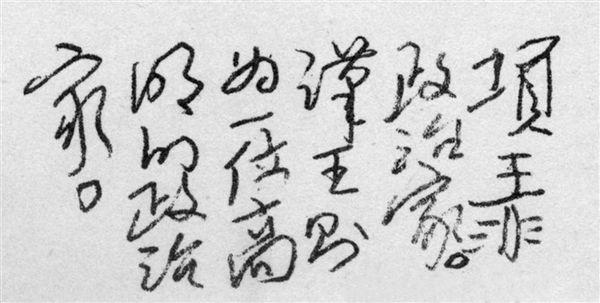 項王非
政治家。
漢王则
为一位高
明的政治
家。